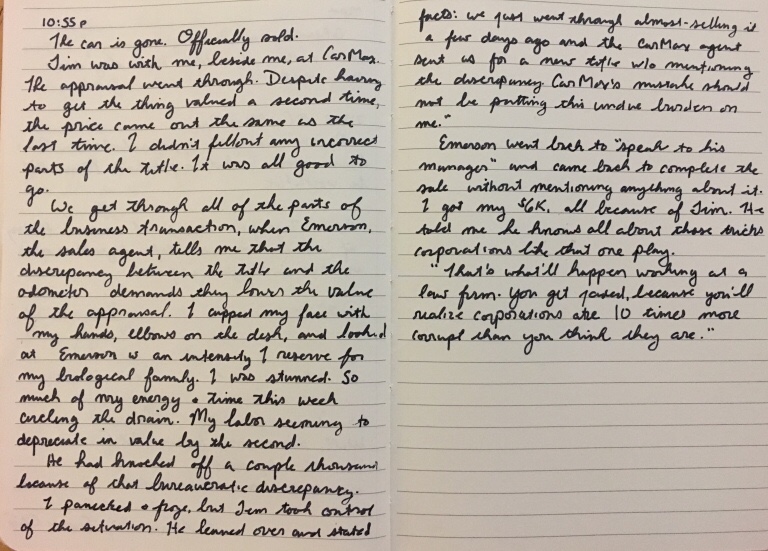 10:55p
The car is gone. Officially sold.
Jim was with me, beside me, at CarMax.
The appraisal went through. Despite having
to get the thing valued a second time,
the price came out the same as the
last time. I didn't fill out any incorrect
parts of the title. It was all good to
go.
We get through all of the parts of
the business transaction, when Emerson,
the sales agent, tells me that the
discrepancy between the title and the
odometer demands they lower the value
of the appraisal. I cupped my face with
my hands, elbows on the desk, and looked
at Emerson w an intensity I reserve for
my biological family. I was stunned. So
much of my energy + time this week
circling the drain. My labor seeming to
depreciate in value by the second.
He had knocked off a couple thousand
because of that bureaucratic discrepancy.
I panicked + froze, but Jim took control
of the situation. He leaned over and stated
facts: we just went through almost-selling it
a few days ago and the CarMax agent
sent us for a new title w/o mentioning
the discrepancy. CarMax's mistake should
not be putting this undue burden on
me."
Emerson went back to "speak to his
manager" and came back to complete the
sale without mentioning anything about it.
I got my $6K, all because of Jim. He
told me he knows all about those tricks
corporations like that one play.
"That's what'll happen working at a
law firm. You get jaded, because you'll
realize corporations are 10 times more
corrupt than you think they are."